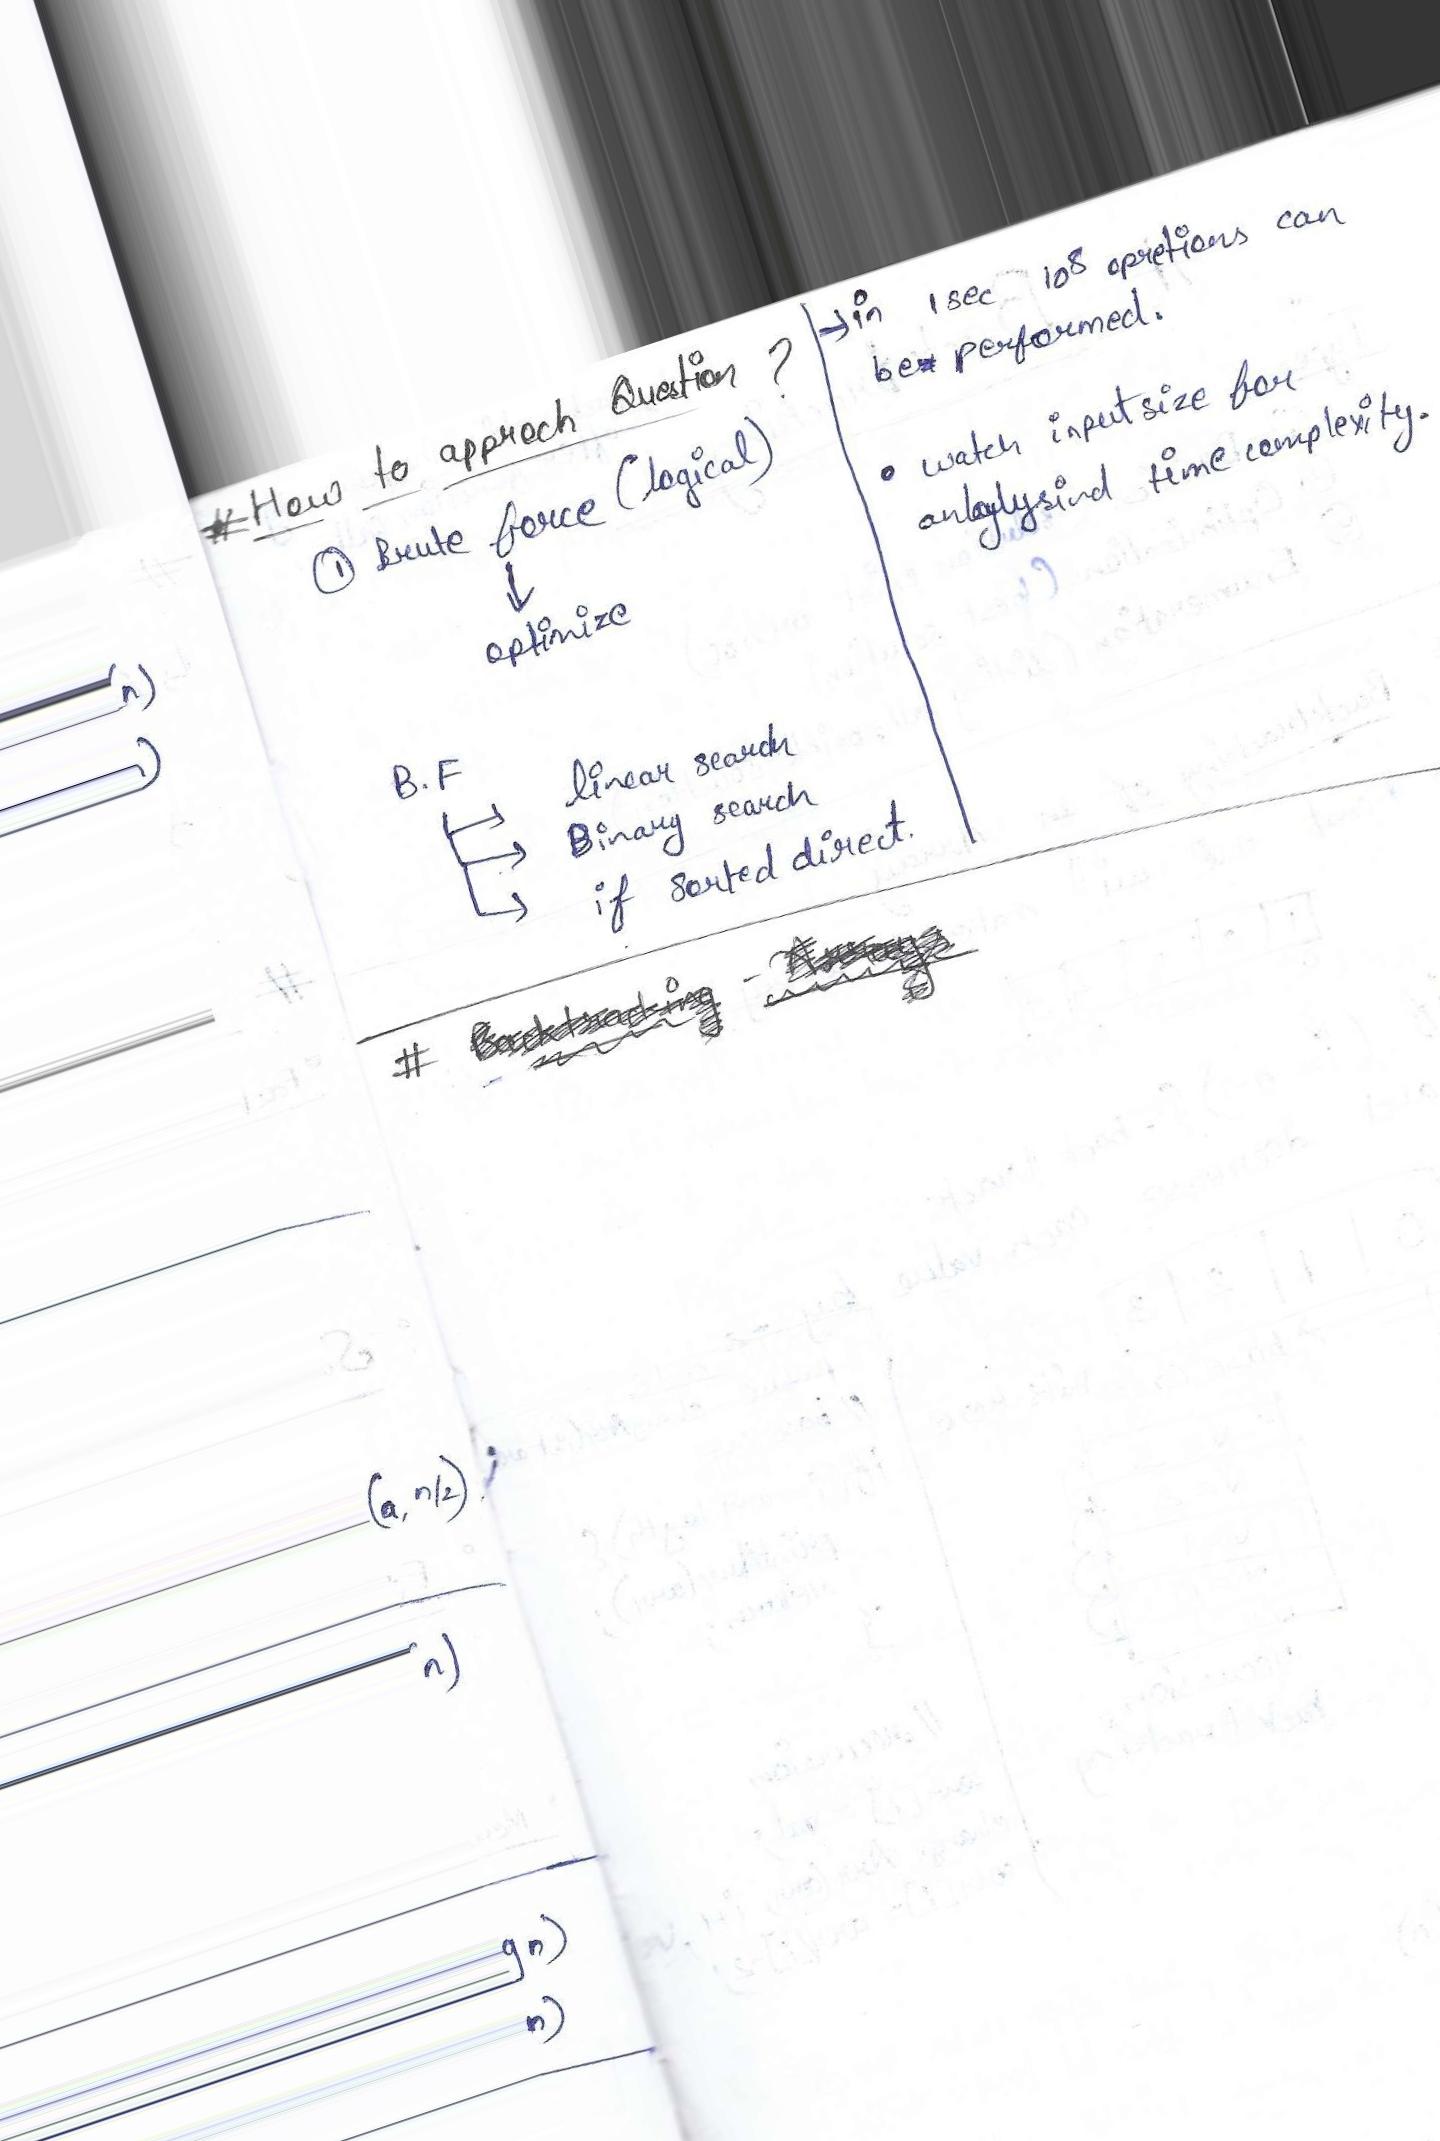 # How to approch Question ?
① Brute force (logical)
↓
optimize
B.F
→ linear search
→ Binary search
→ if sorted direct.
→ in 1 sec 10⁸ opretions can
be performed.
• watch input size for
anlaylysind time complexity.
# Backtracking - Array
n)
)
(a, n/2);
n)
gn)
n)